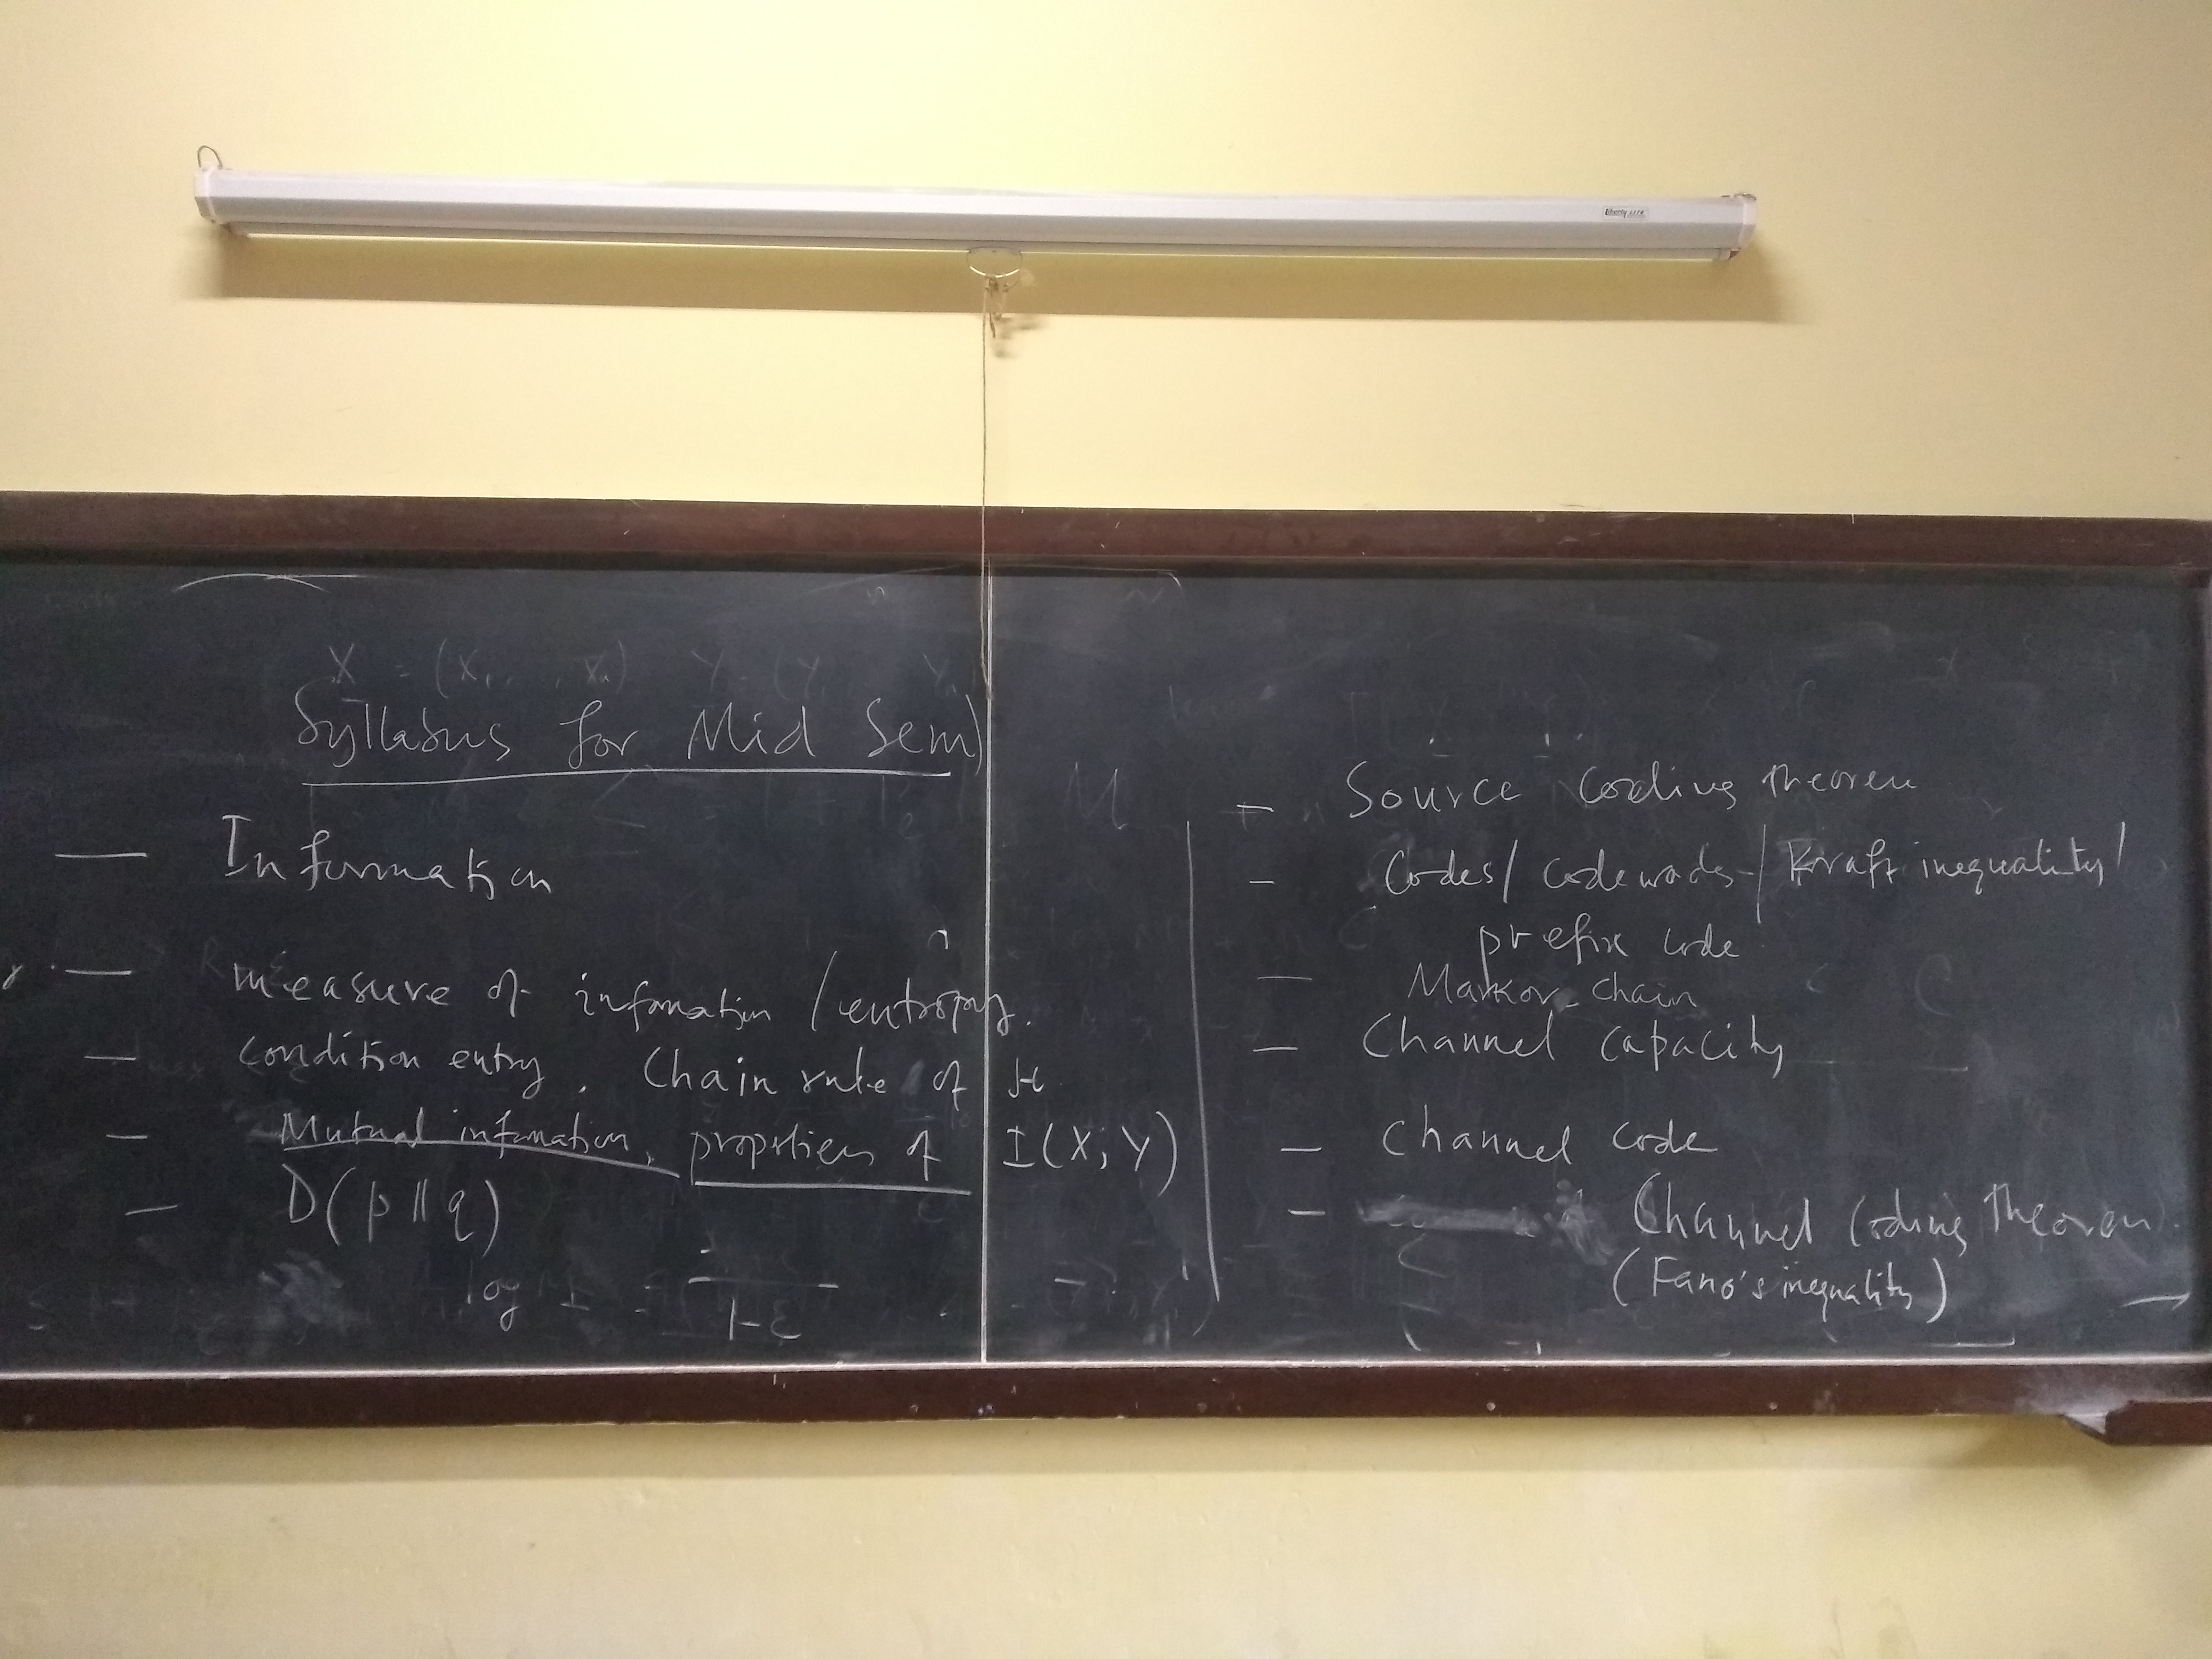 X = (X₁, .., Xₙ) Y = (Y₁ Yₙ
Syllabus for Mid Sem)
— Information
— measure of information / entropy.
— condition entry. Chain rule of H
— Mutual information, properties of I(X; Y)
— D(p || q)
log M
1-ε
— Source coding theorem
— Codes / codewords / Kraft inequality /
prefix code
— Markov chain
— Channel capacity
— Channel code
— Channel Coding Theorem.
(Fano's inequality)